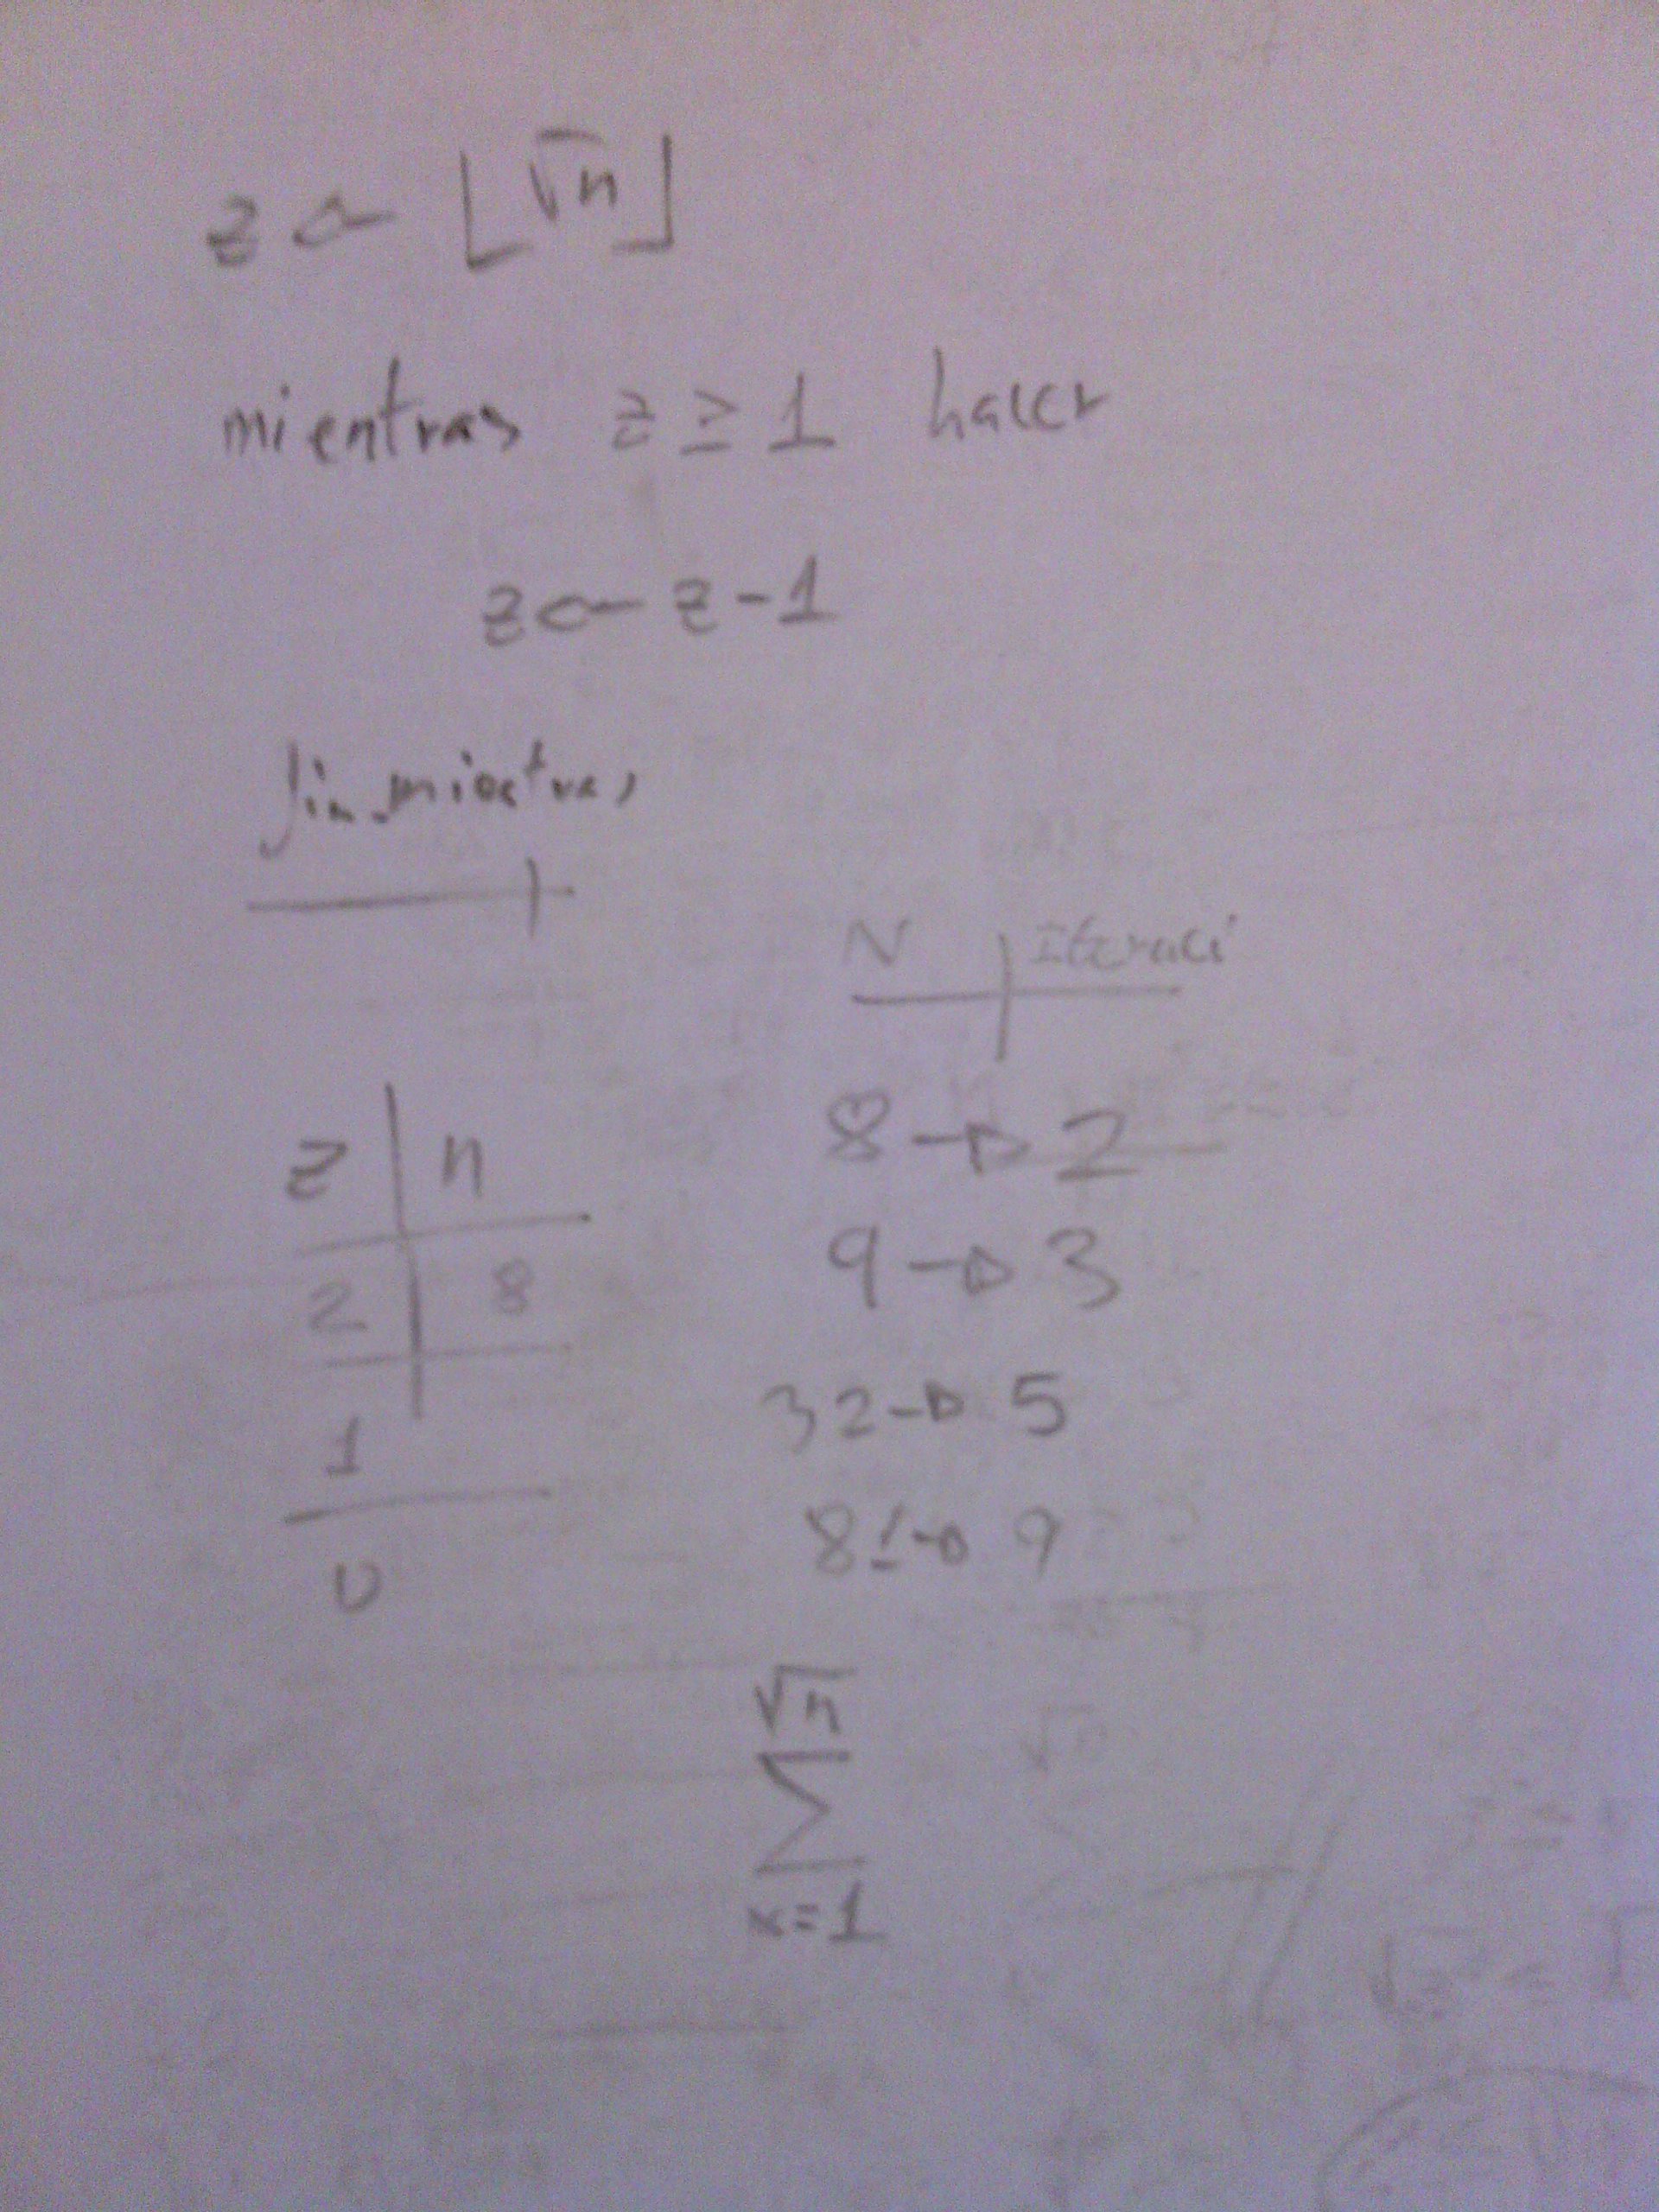 z ← ⌊√n⌋
mientras z ≥ 1 hacer
z ← z - 1
fin_mientras
z | n
2 | 8
1
0
N | Iteraci
8 → 2
9 → 3
32 → 5
81 → 9
√n
∑
x=1